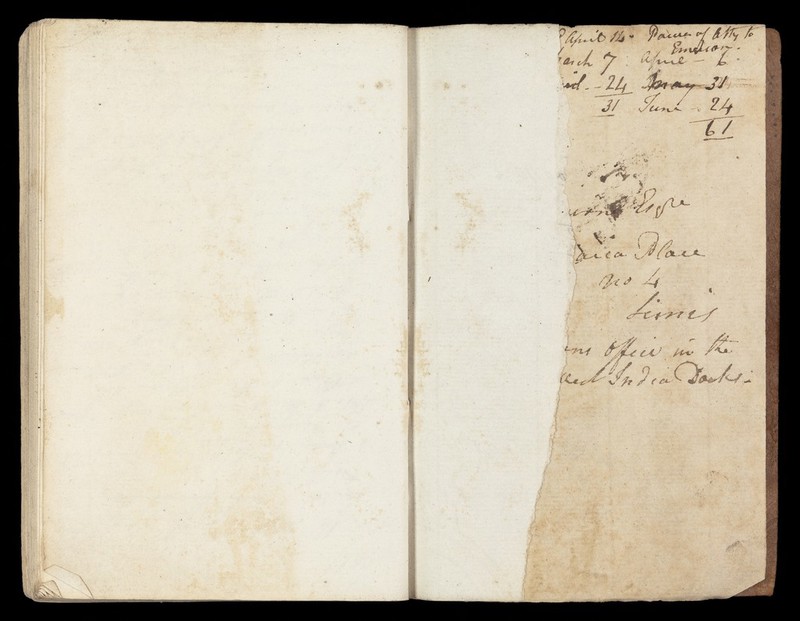 April 14 Power of Atty to
Emerson
arch 7 April - 6
- 24 May 31
31 June - 24
61
Esqre
aica Place
no 4
Limes
ns office in the
India Docks